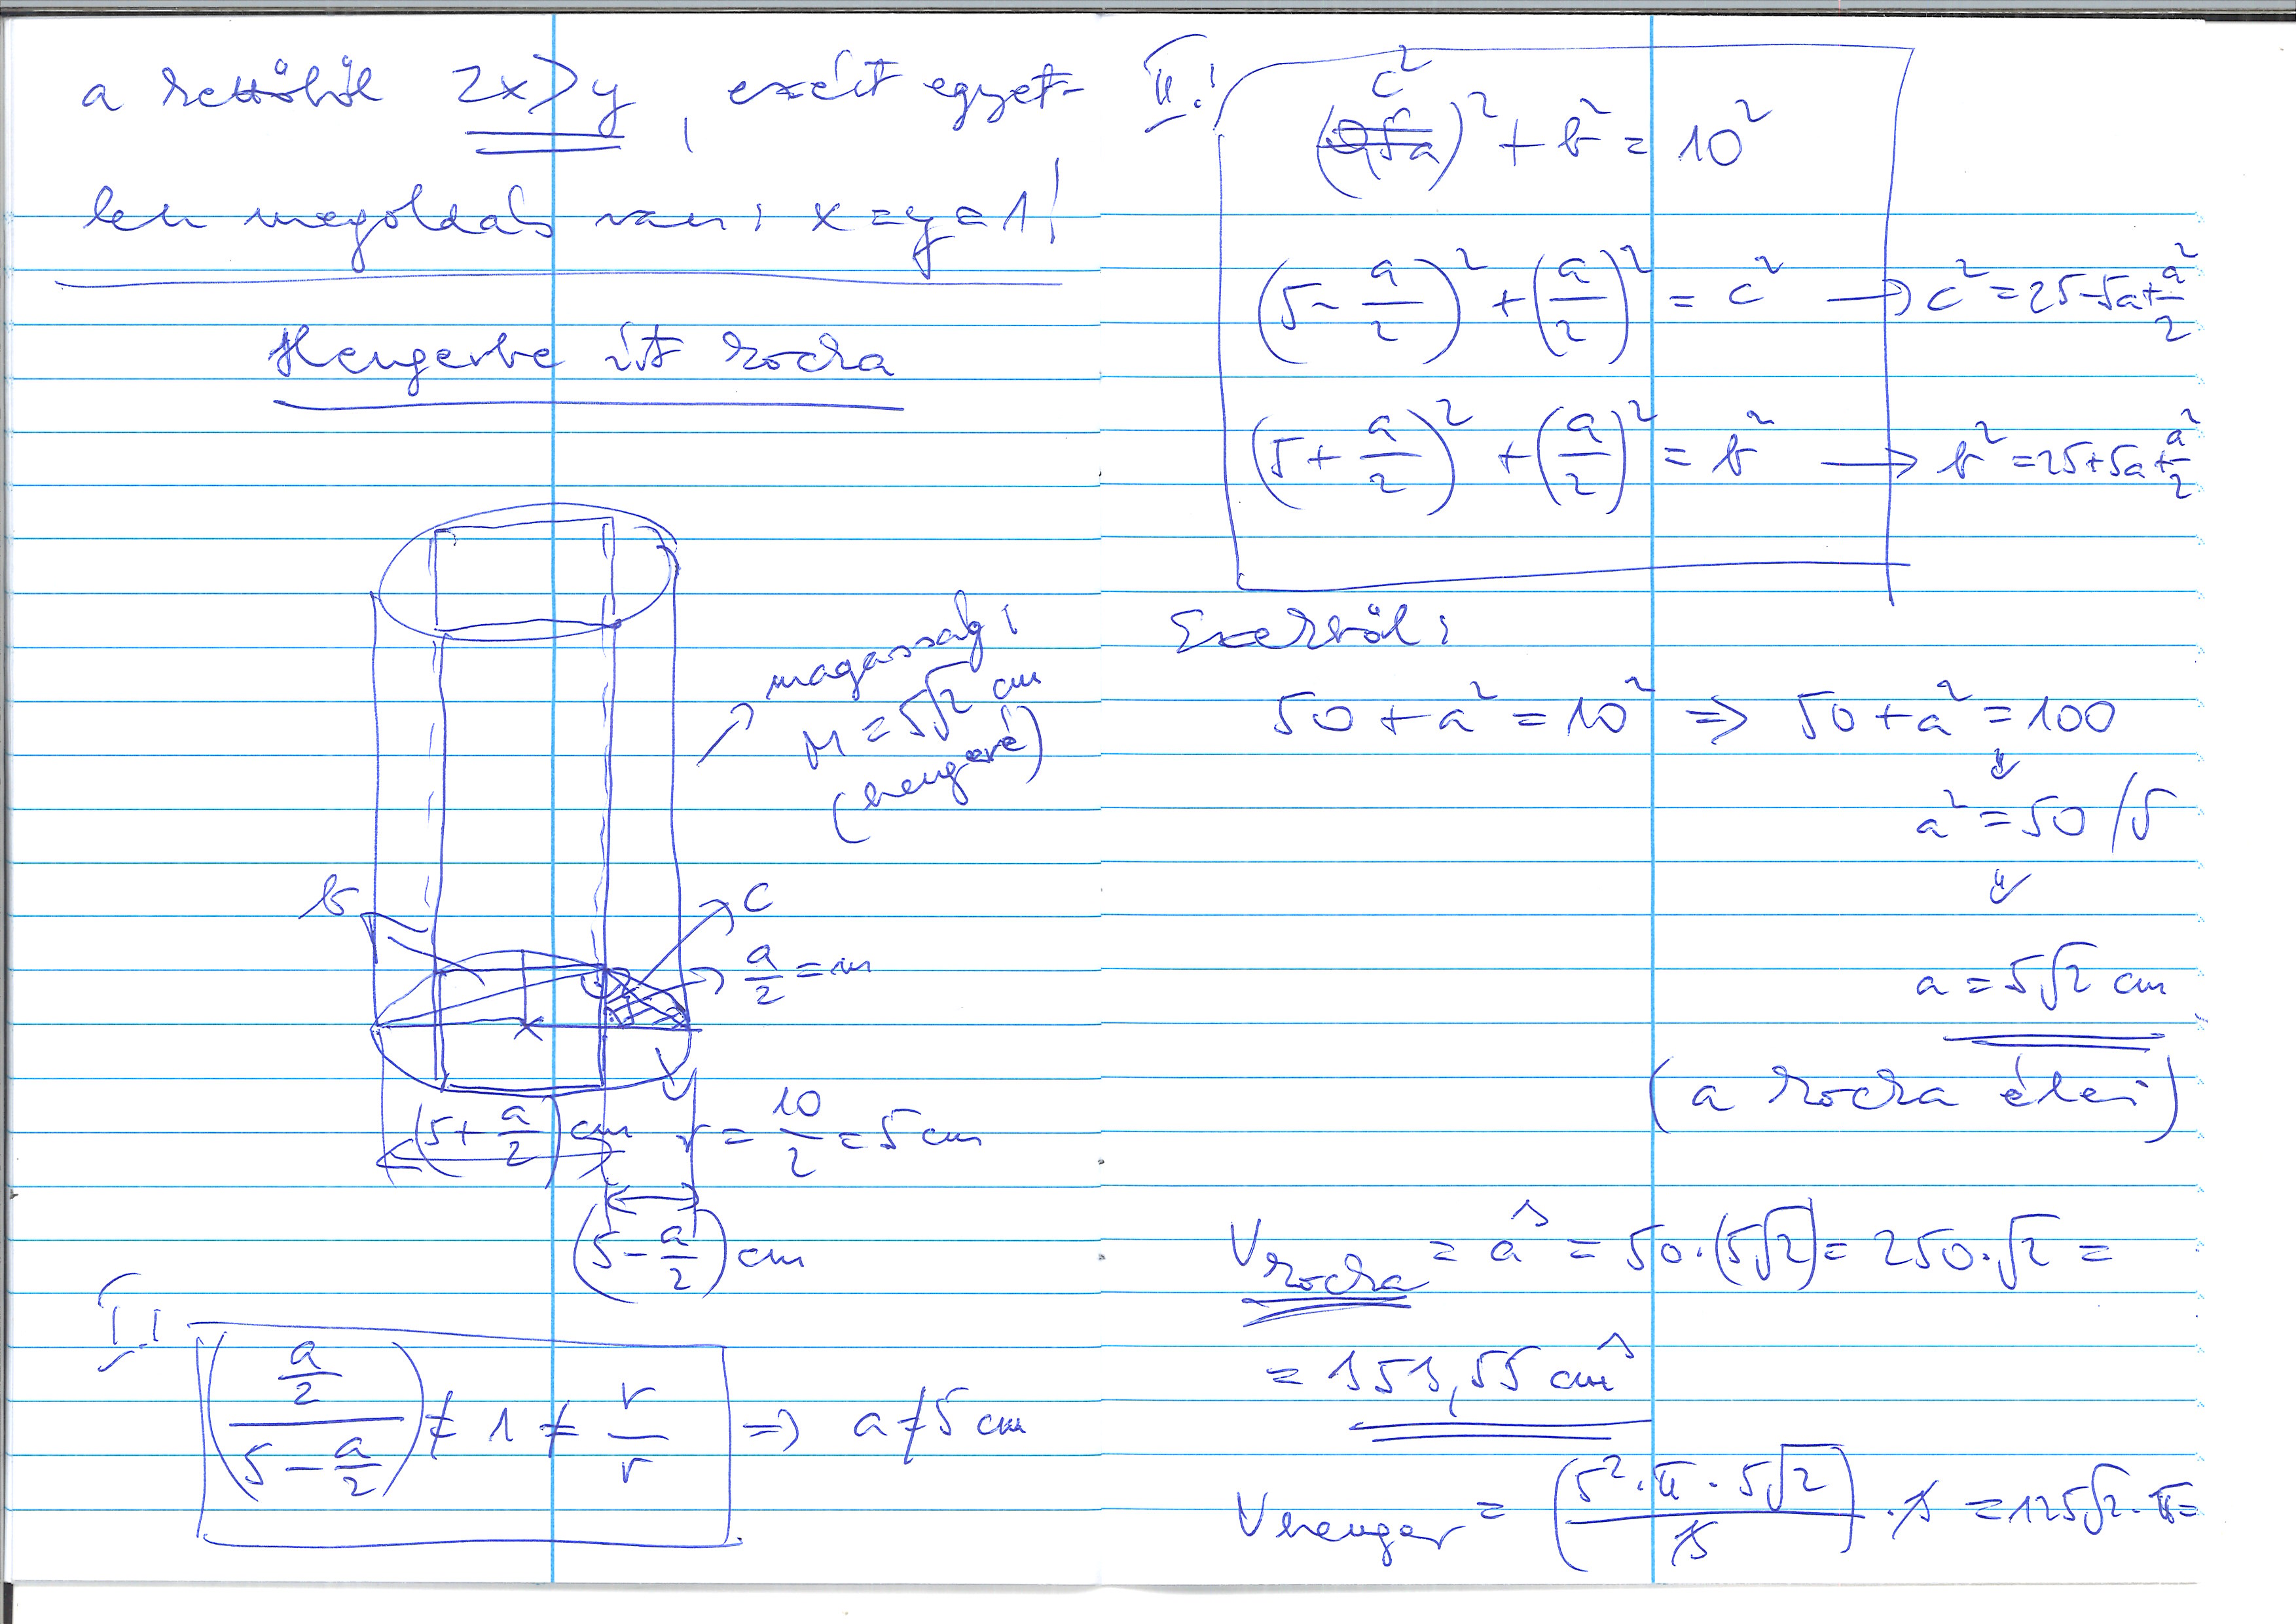 a kettőből 2x>y, ezért egyet-
len megoldás van: x=y=1!
Hengerbe írt kocka
magasság:
M = 5√2 cm
(hengeré)
b
c
a/2 = m
(5+a/2) cm
r = 10/2 = 5 cm
(5-a/2) cm
I.!
((a/2)/(5-a/2)) ≠ 1 ≠ r/r ⇒ a≠5 cm
II.!
c²
( )² + b² = 10²
(5-a/2)² + (a/2)² = c² → c² = 25-5a+a²/2
(5+a/2)² + (a/2)² = b² → b² = 25+5a+a²/2
Ezekből:
50+a² = 10² ⇒ 50+a² = 100
⇓
a² = 50 /√
⇓
a = 5√2 cm
(a kocka élei)
V kocka = a³ = 50·(5√2) = 250·√2 =
= 353,55 cm³
V henger = (5²·π·5√2/3)·3 = 125√2·π =